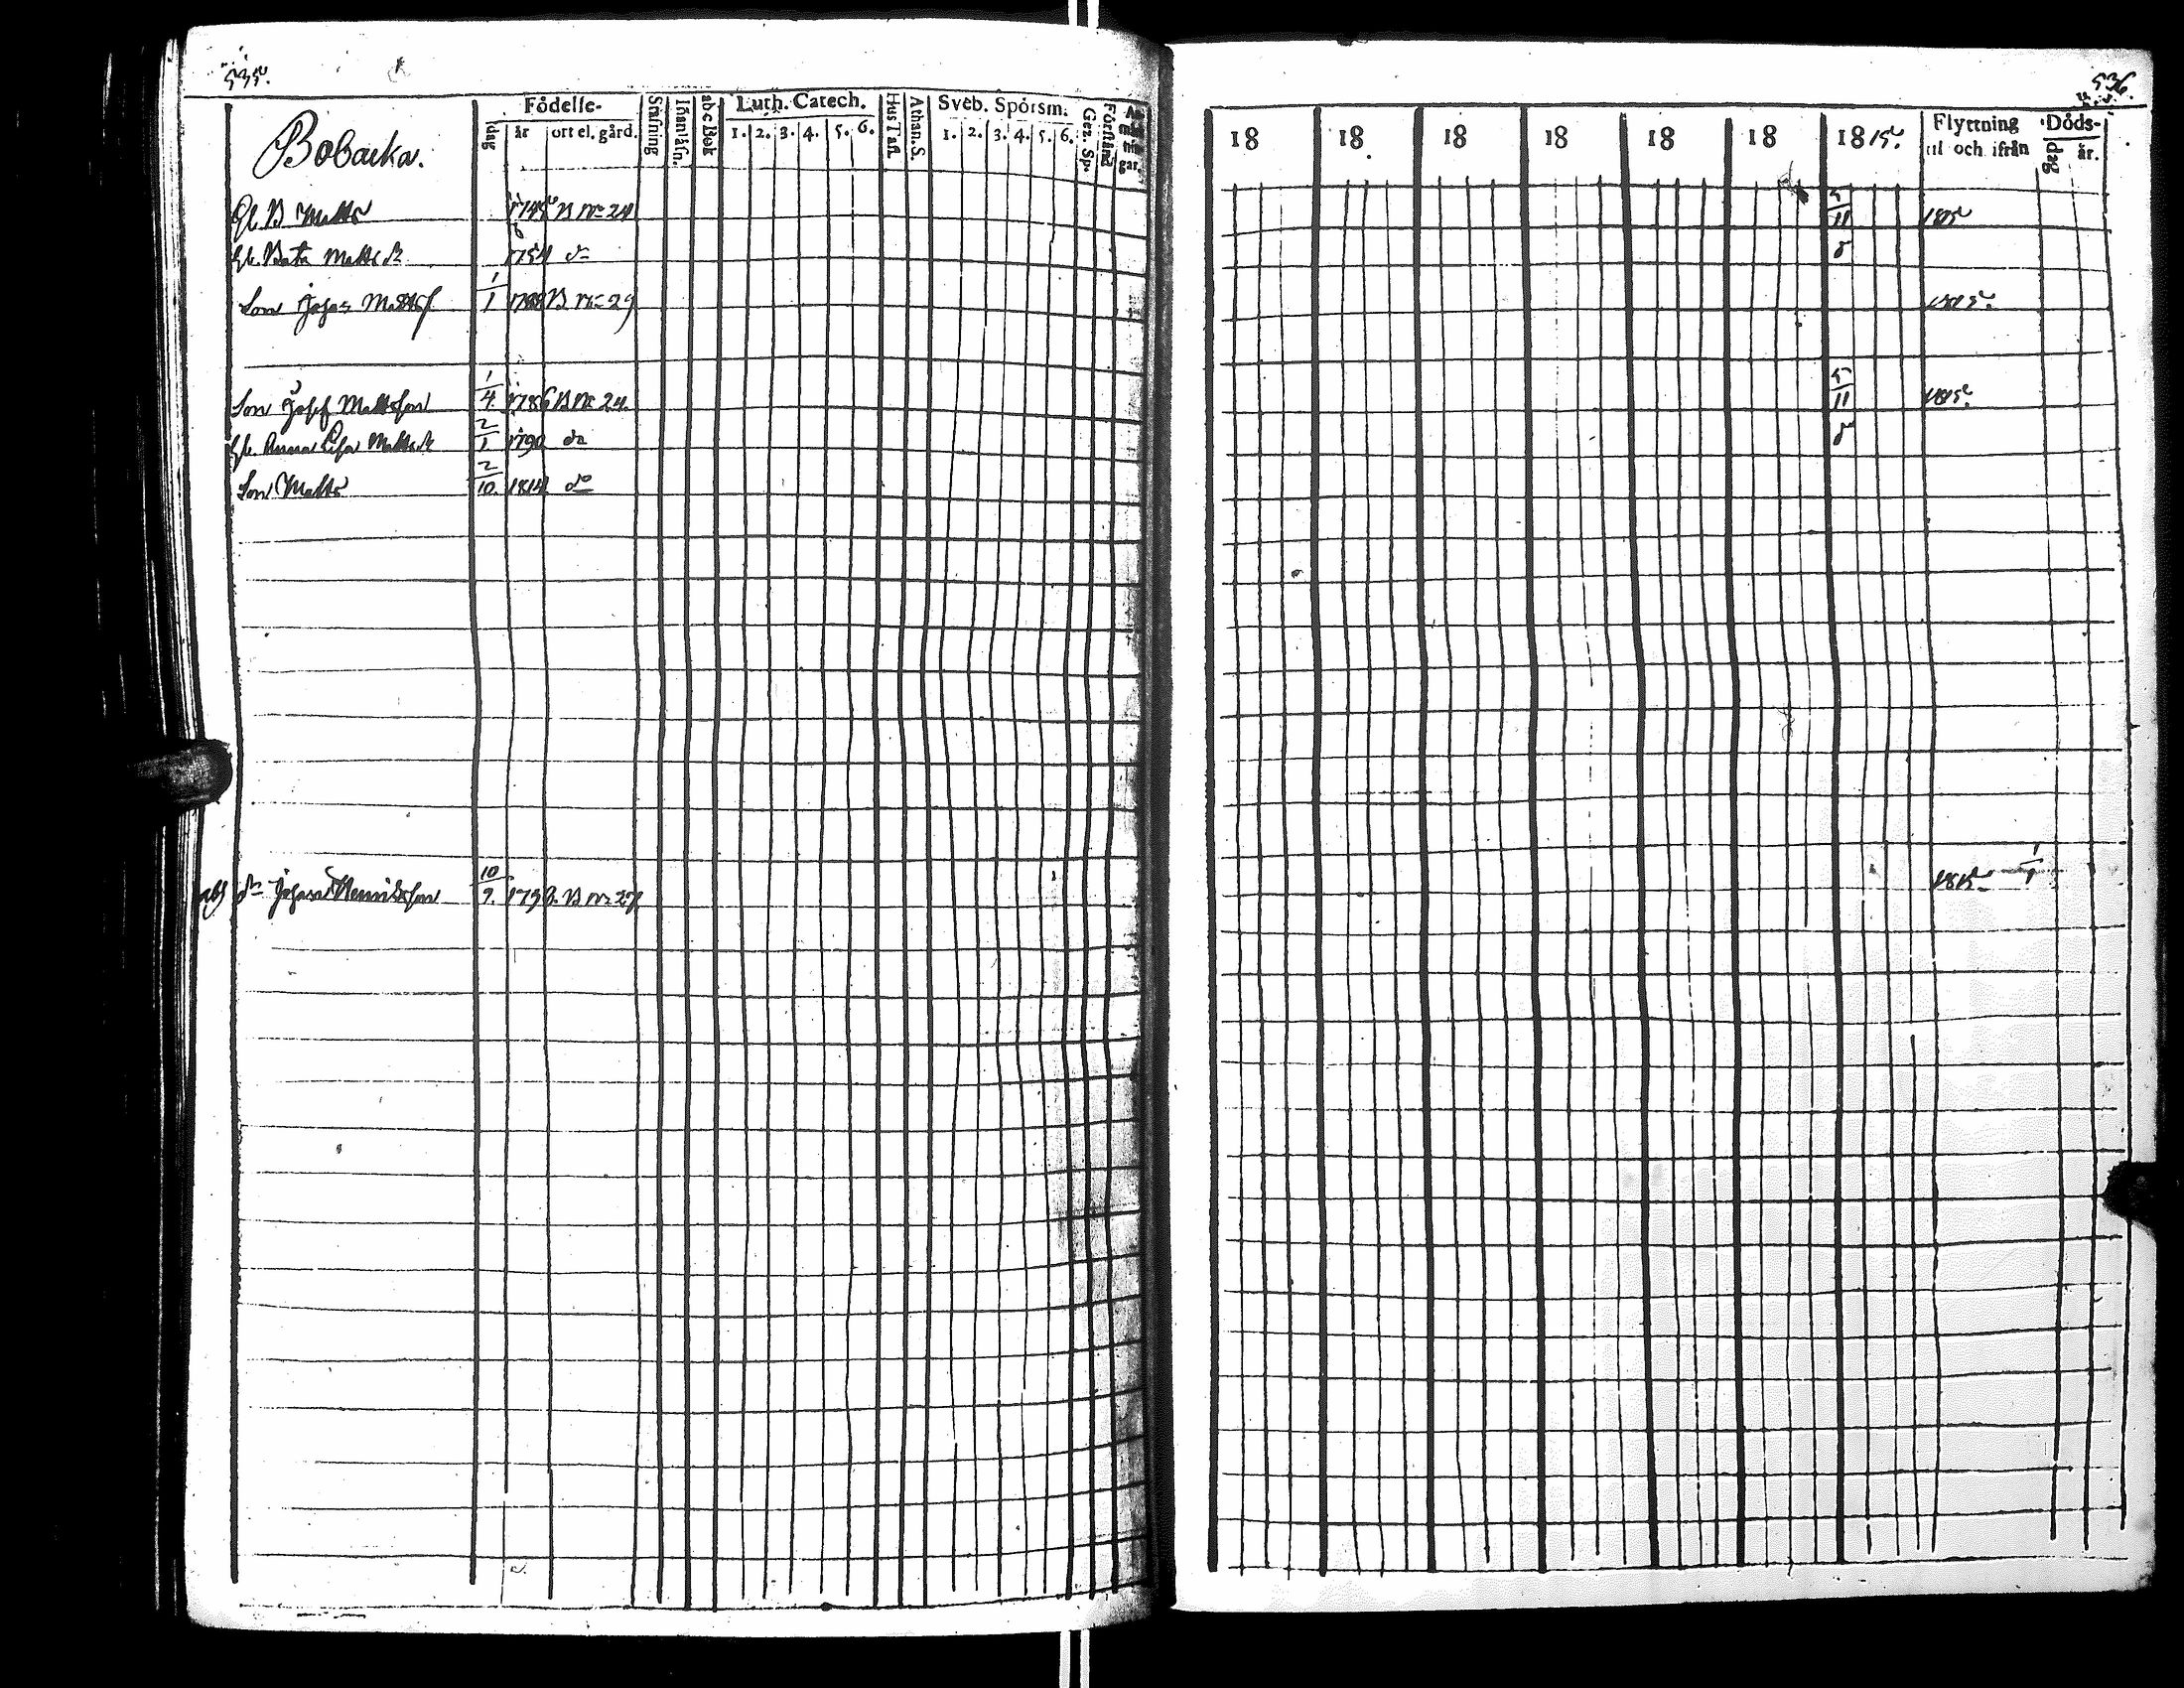 535.
Bobacka.
Födelse-
dag
år
ort el. gård.
Stafning
Inanläsn.
abc Bok
Luth. Catech.
1. 2. 3. 4. 5. 6.
Hus Tafl.
Athan. S.
Sveb. Spörsm.
1. 2. 3. 4. 5. 6.
Gez. Sp.
Förstånd
B Matts 1745 B No 24
Matts dr 1754 do
Son Mattss 1/1 1788 B No 29
Son Josef Mattsson 1/4. 1786 B No 24.
Anna Lisa Matts dr 2/1 1790 do
Son Matts 2/10. 1814 do
do Johan Henriksson 10/9. 1793. B No 27
536.
18 18 18 18 18 18 1815.
Flyttning
til och ifrån
Döds-
dag
år.
5/11 1815
1815.
5/11 1815.
1815 1/1